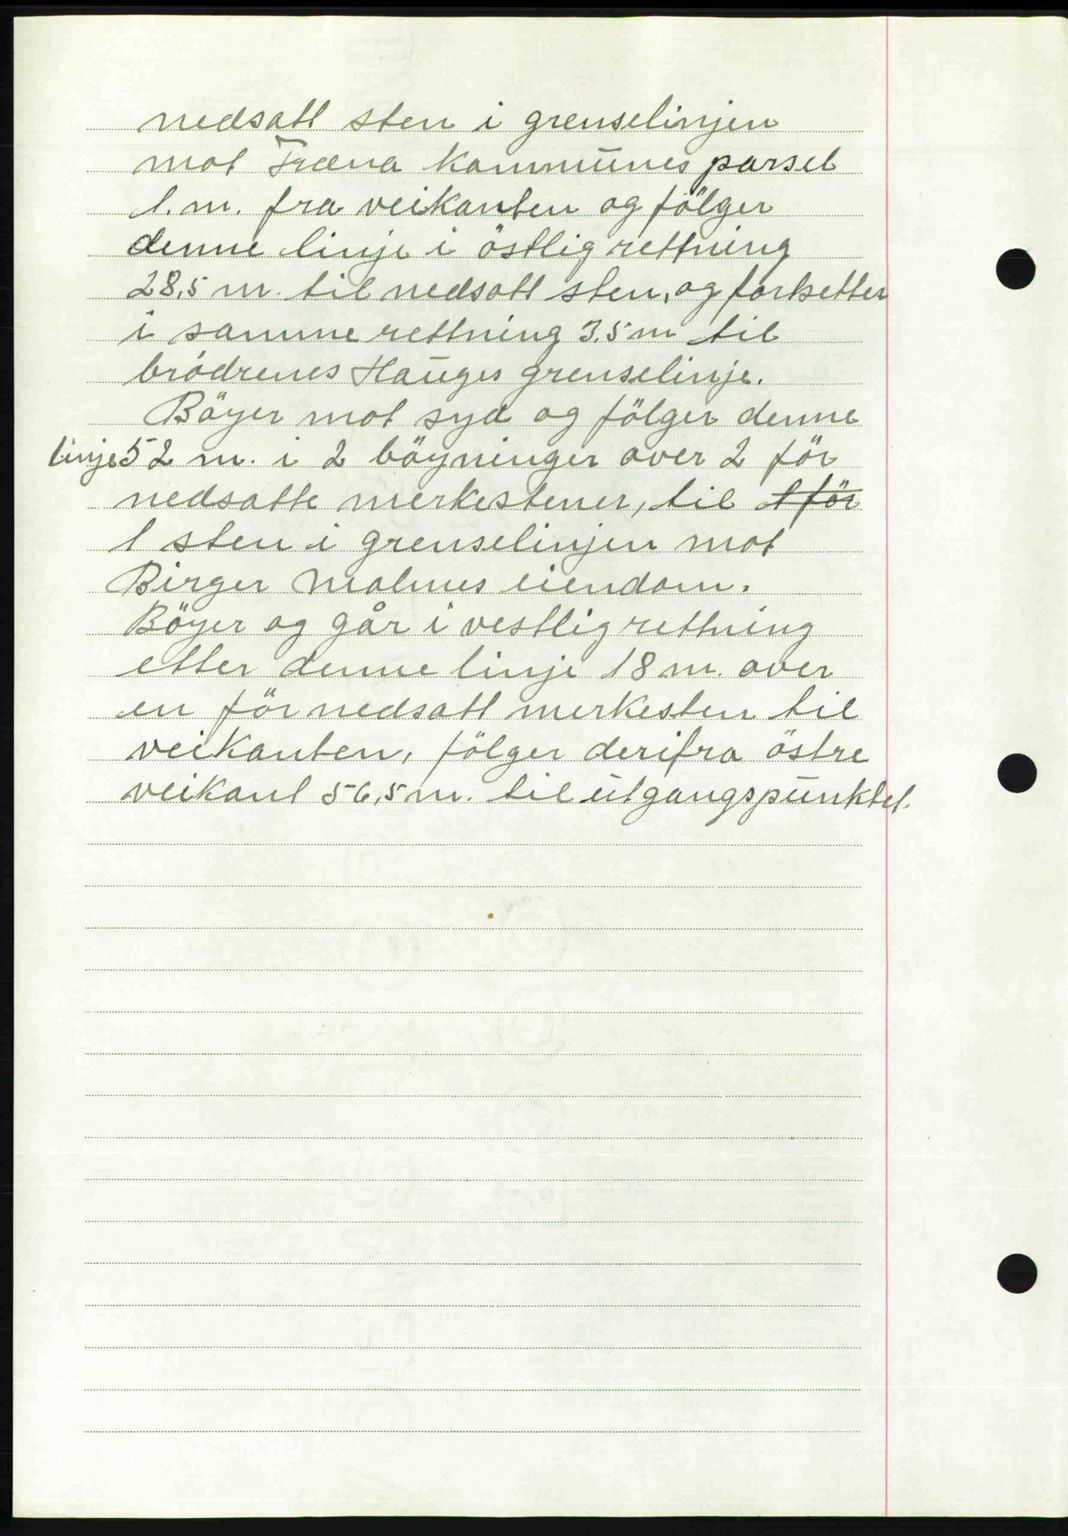 nedsatt sten i grenselinjen
mot Fræna Kommunes parsel
1. m. fra veikanten og fölger
denne linje i östlig rettning
28,5 m. til nedsatt sten, og fortsetter
i samme rettning 3.5 m til
brödrenes Hauges grenselinje.
Böyer mot syd og fölger denne
linje 52 m. i 2 böyninger over 2 för
nedsatte merkestener, til 1 för
1 sten i grenselinjen mot
Birger Malmes eiendom.
Böyer og går i vestlig rettning
etter denne linje 18 m. over
en för nedsatt merkesten til
veikanten, fölger derifra östre
veikant 56,5 m. til utgangspunktet.